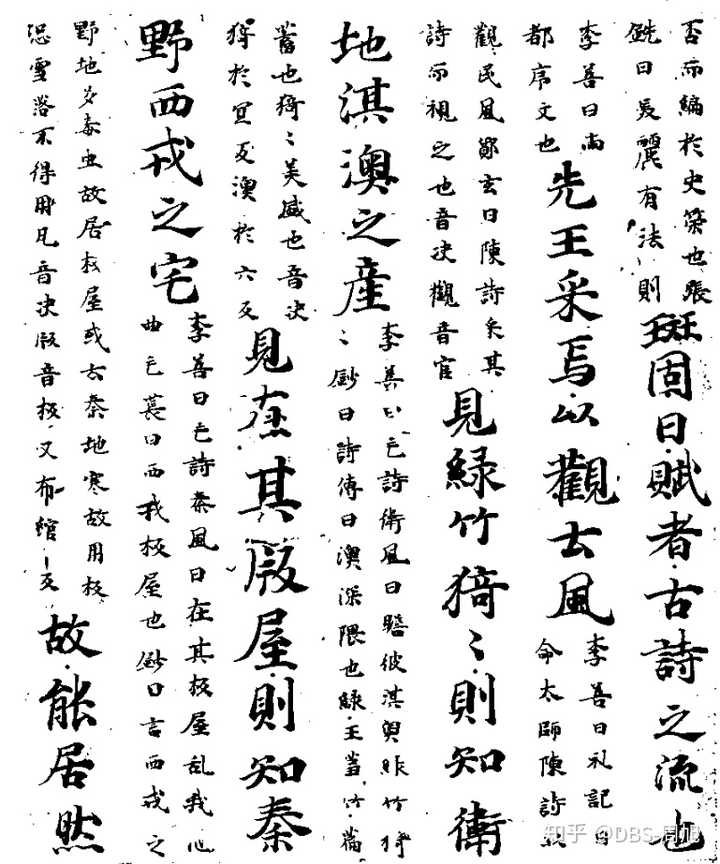 否而編於史策也張
銑曰吴麗有法則
班固曰賦者古詩之流也
李善曰尚
都序文也
先王采焉以觀土風
李善曰礼記曰
命太師陳詩以
觀民風鄭玄曰陳詩采其
詩而視之也音决觀音官
見緑竹猗〻則知衛
地淇澳之産
李善曰毛詩衛風曰瞻彼淇奥緑竹猗
〻鈔曰詩傳曰澳深隈也緑王芻竹萹
蓄也猗〻美盛也音决
猗於冝反澳於六反
見在其版屋則知秦
野西戎之宅
李善曰毛詩秦風曰在其板屋乱我心
曲毛萇曰西戎板屋也鈔曰言西戎之
野地多毒虫故居板屋或云秦地寒故用板
恐雪落不得用瓦音决版音板又布綰反
故能居然
知乎 @DBS-周旭